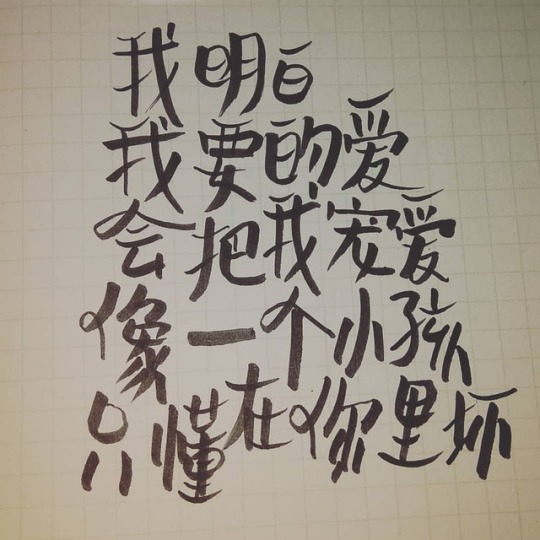 我明白
我要的爱
会把我宠爱
像一个小孩
只懂在你里坏